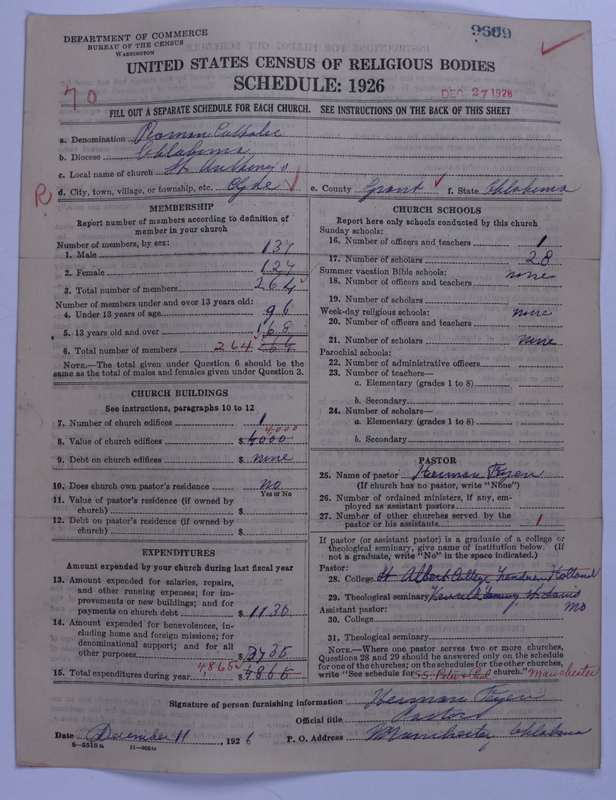 DEPARTMENT OF COMMERCE
BUREAU OF THE CENSUS
WASHINGTON
9609
UNITED STATES CENSUS OF RELIGIOUS BODIES
SCHEDULE: 1926
70
DEC 27 1926
FILL OUT A SEPARATE SCHEDULE FOR EACH CHURCH. SEE INSTRUCTIONS ON THE BACK OF THIS SHEET
a. Denomination Roman Catholic
b. Diocese Oklahoma
c. Local name of church St. Anthony's
R d. City, town, village, or township, etc. Clyde e. County Grant f. State Oklahoma
MEMBERSHIP
Report number of members according to definition of
member in your church
Number of members, by sex:
1. Male 137
2. Female 127
3. Total number of members 264
Number of members under and over 13 years old:
4. Under 13 years of age 96
5. 13 years old and over 168
6. Total number of members 264
NOTE.—The total given under Question 6 should be the
same as the total of males and females given under Question 3.
CHURCH BUILDINGS
See instructions, paragraphs 10 to 12
7. Number of church edifices 1
4000
8. Value of church edifices $ 4000
9. Debt on church edifices $ none
10. Does church own pastor's residence? no
Yes or No
11. Value of pastor's residence (if owned by
church) $
12. Debt on pastor's residence (if owned by
church) $
EXPENDITURES
Amount expended by church during last fiscal year
13. Amount expended for salaries, repairs,
and other running expenses; for im-
provements or new buildings; and for
payments on church debt $ 1130
14. Amount expended for benevolences, in-
cluding home and foreign missions; for
denominational support; and for all
other purposes $ 3735
15. Total expenditures during year 4865 $ 4865
CHURCH SCHOOLS
Report here only schools conducted by this church
Sunday schools:
16. Number of officers and teachers 1
17. Number of scholars 28
Summer vacation Bible schools: none
18. Number of officers and teachers
19. Number of scholars
Week-day religious schools: none
20. Number of officers and teachers
21. Number of scholars none
Parochial schools:
22. Number of administrative officers
23. Number of teachers—
a. Elementary (grades 1 to 8)
b. Secondary
24. Number of scholars—
a. Elementary (grades 1 to 8)
b. Secondary
PASTOR
25. Name of pastor Herman
(If church has no pastor, write "None")
26. Number of ordained ministers, if any, em-
ployed as assistant pastors
27. Number of other churches served by the
pastor or his assistants 1
If pastor (or assistant pastor) is a graduate of a college or
theological seminary, give name of institution below. (If
not a graduate, write "No" in the space indicated.)
Pastor:
28. College St. Albert College Holland
29. Theological seminary Kenrick St. Louis
Mo
Assistant pastor:
30. College
31. Theological seminary
NOTE.—Where one pastor serves two or more churches,
Questions 28 and 29 should be answered only on the schedule
for one of the churches; on the schedules for the other churches,
write "See schedule for SS. Peter & Paul church." Manchester
Signature of person furnishing information Herman
Official title Pastor
Date December 11, 1926 P. O. Address Manchester, Oklahoma
8—5518a 11—9034a